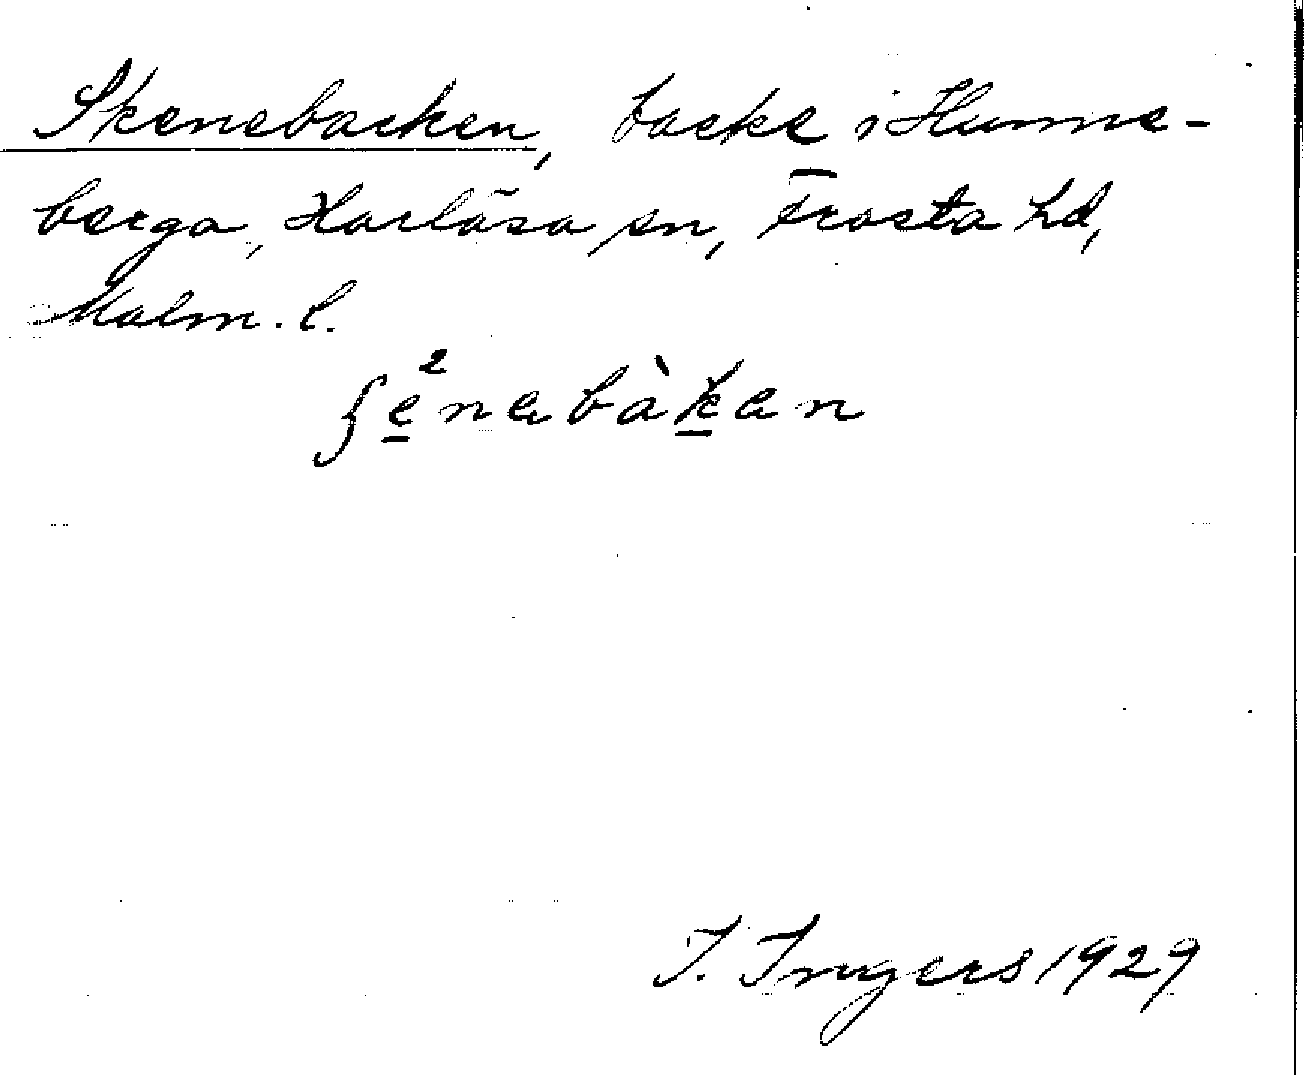 Skenebacken, backe i Hunne-
berga, Harlösa sn, Frosta hd,
Malm. l.
ʃe²nabàkan
I. Ingers 1929